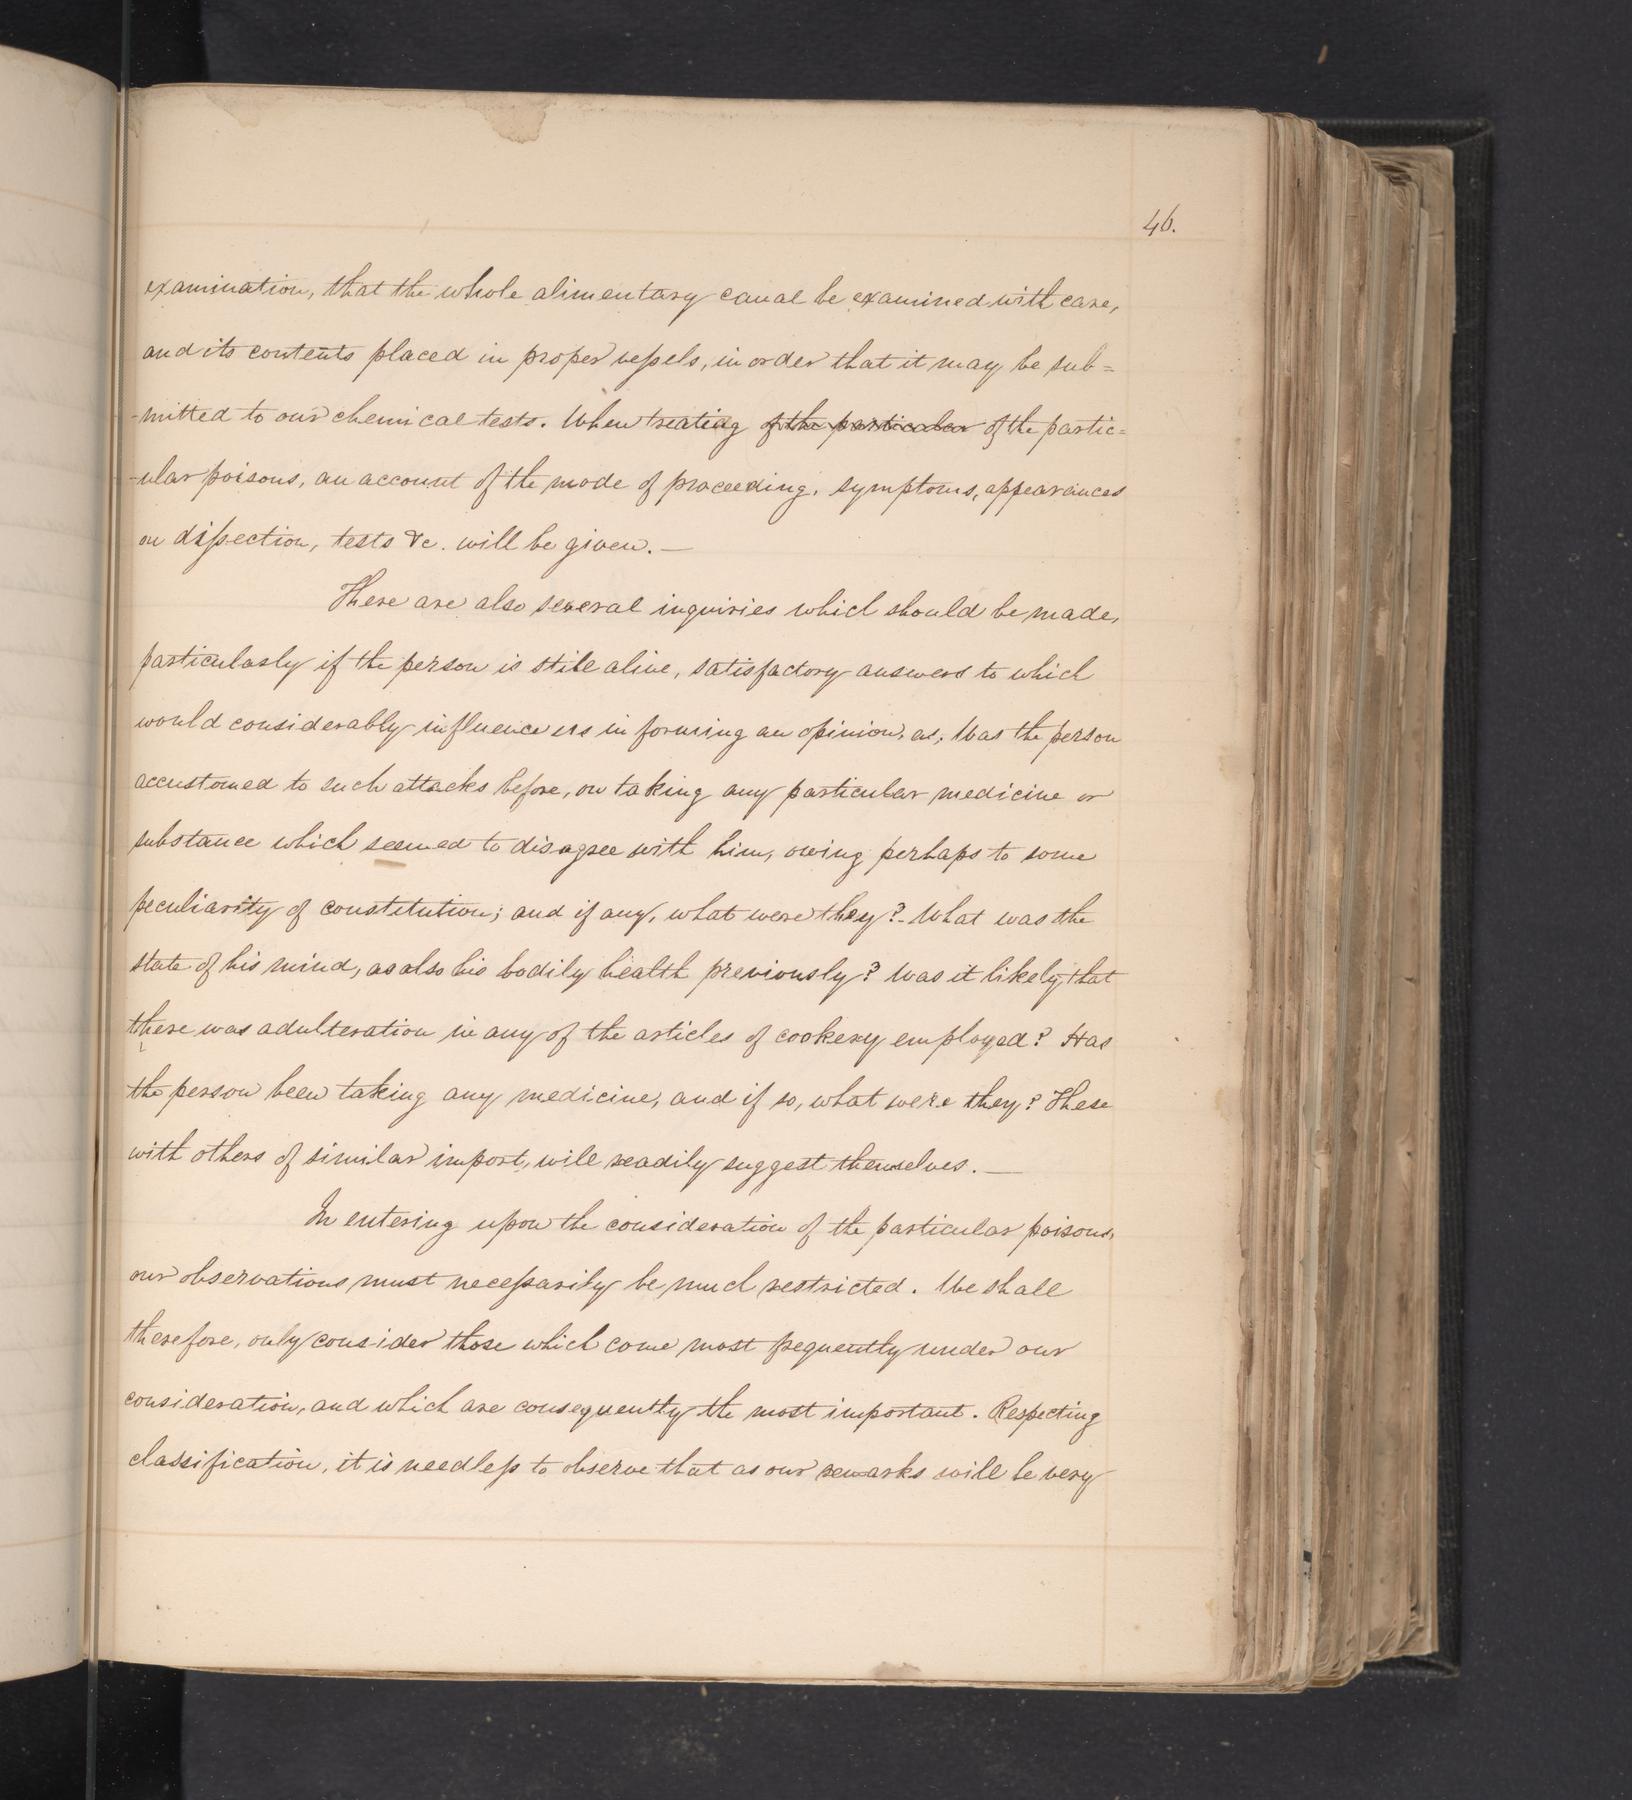 46.
examination, that the whole alimentary canal be examined with care,
and its contents placed in proper vessels, in order that it may be sub=
-mitted to our chemical tests. When treating of the particular of the partic=
-ular poisons, an account of the mode of proceeding, symptoms, appearances
on dissection, tests &c. will be given. —
There are also several inquiries which should be made,
particularly if the person is still alive, satisfactory answers to which
would considerably influence us in forming an opinion, as, Was the person
accustomed to such attacks before, on taking any particular medicine or
substance which seemed to disagree with him, owing perhaps to some
peculiarity of constitution; and if any, what were they? - What was the
state of his mind, as also his bodily health previously? Was it likely that
there was adulteration in any of the articles of cookery employed? Has
the person been taking any medicine, and if so, what were they? These
with others of similar import, will readily suggest themselves. —
In entering upon the consideration of the particular poisons,
our observations must necessarily be much restricted. We shall
therefore, only consider those which come most frequently under our
consideration, and which are consequently the most important. Respecting
classification, it is needless to observe that as our remarks will be very